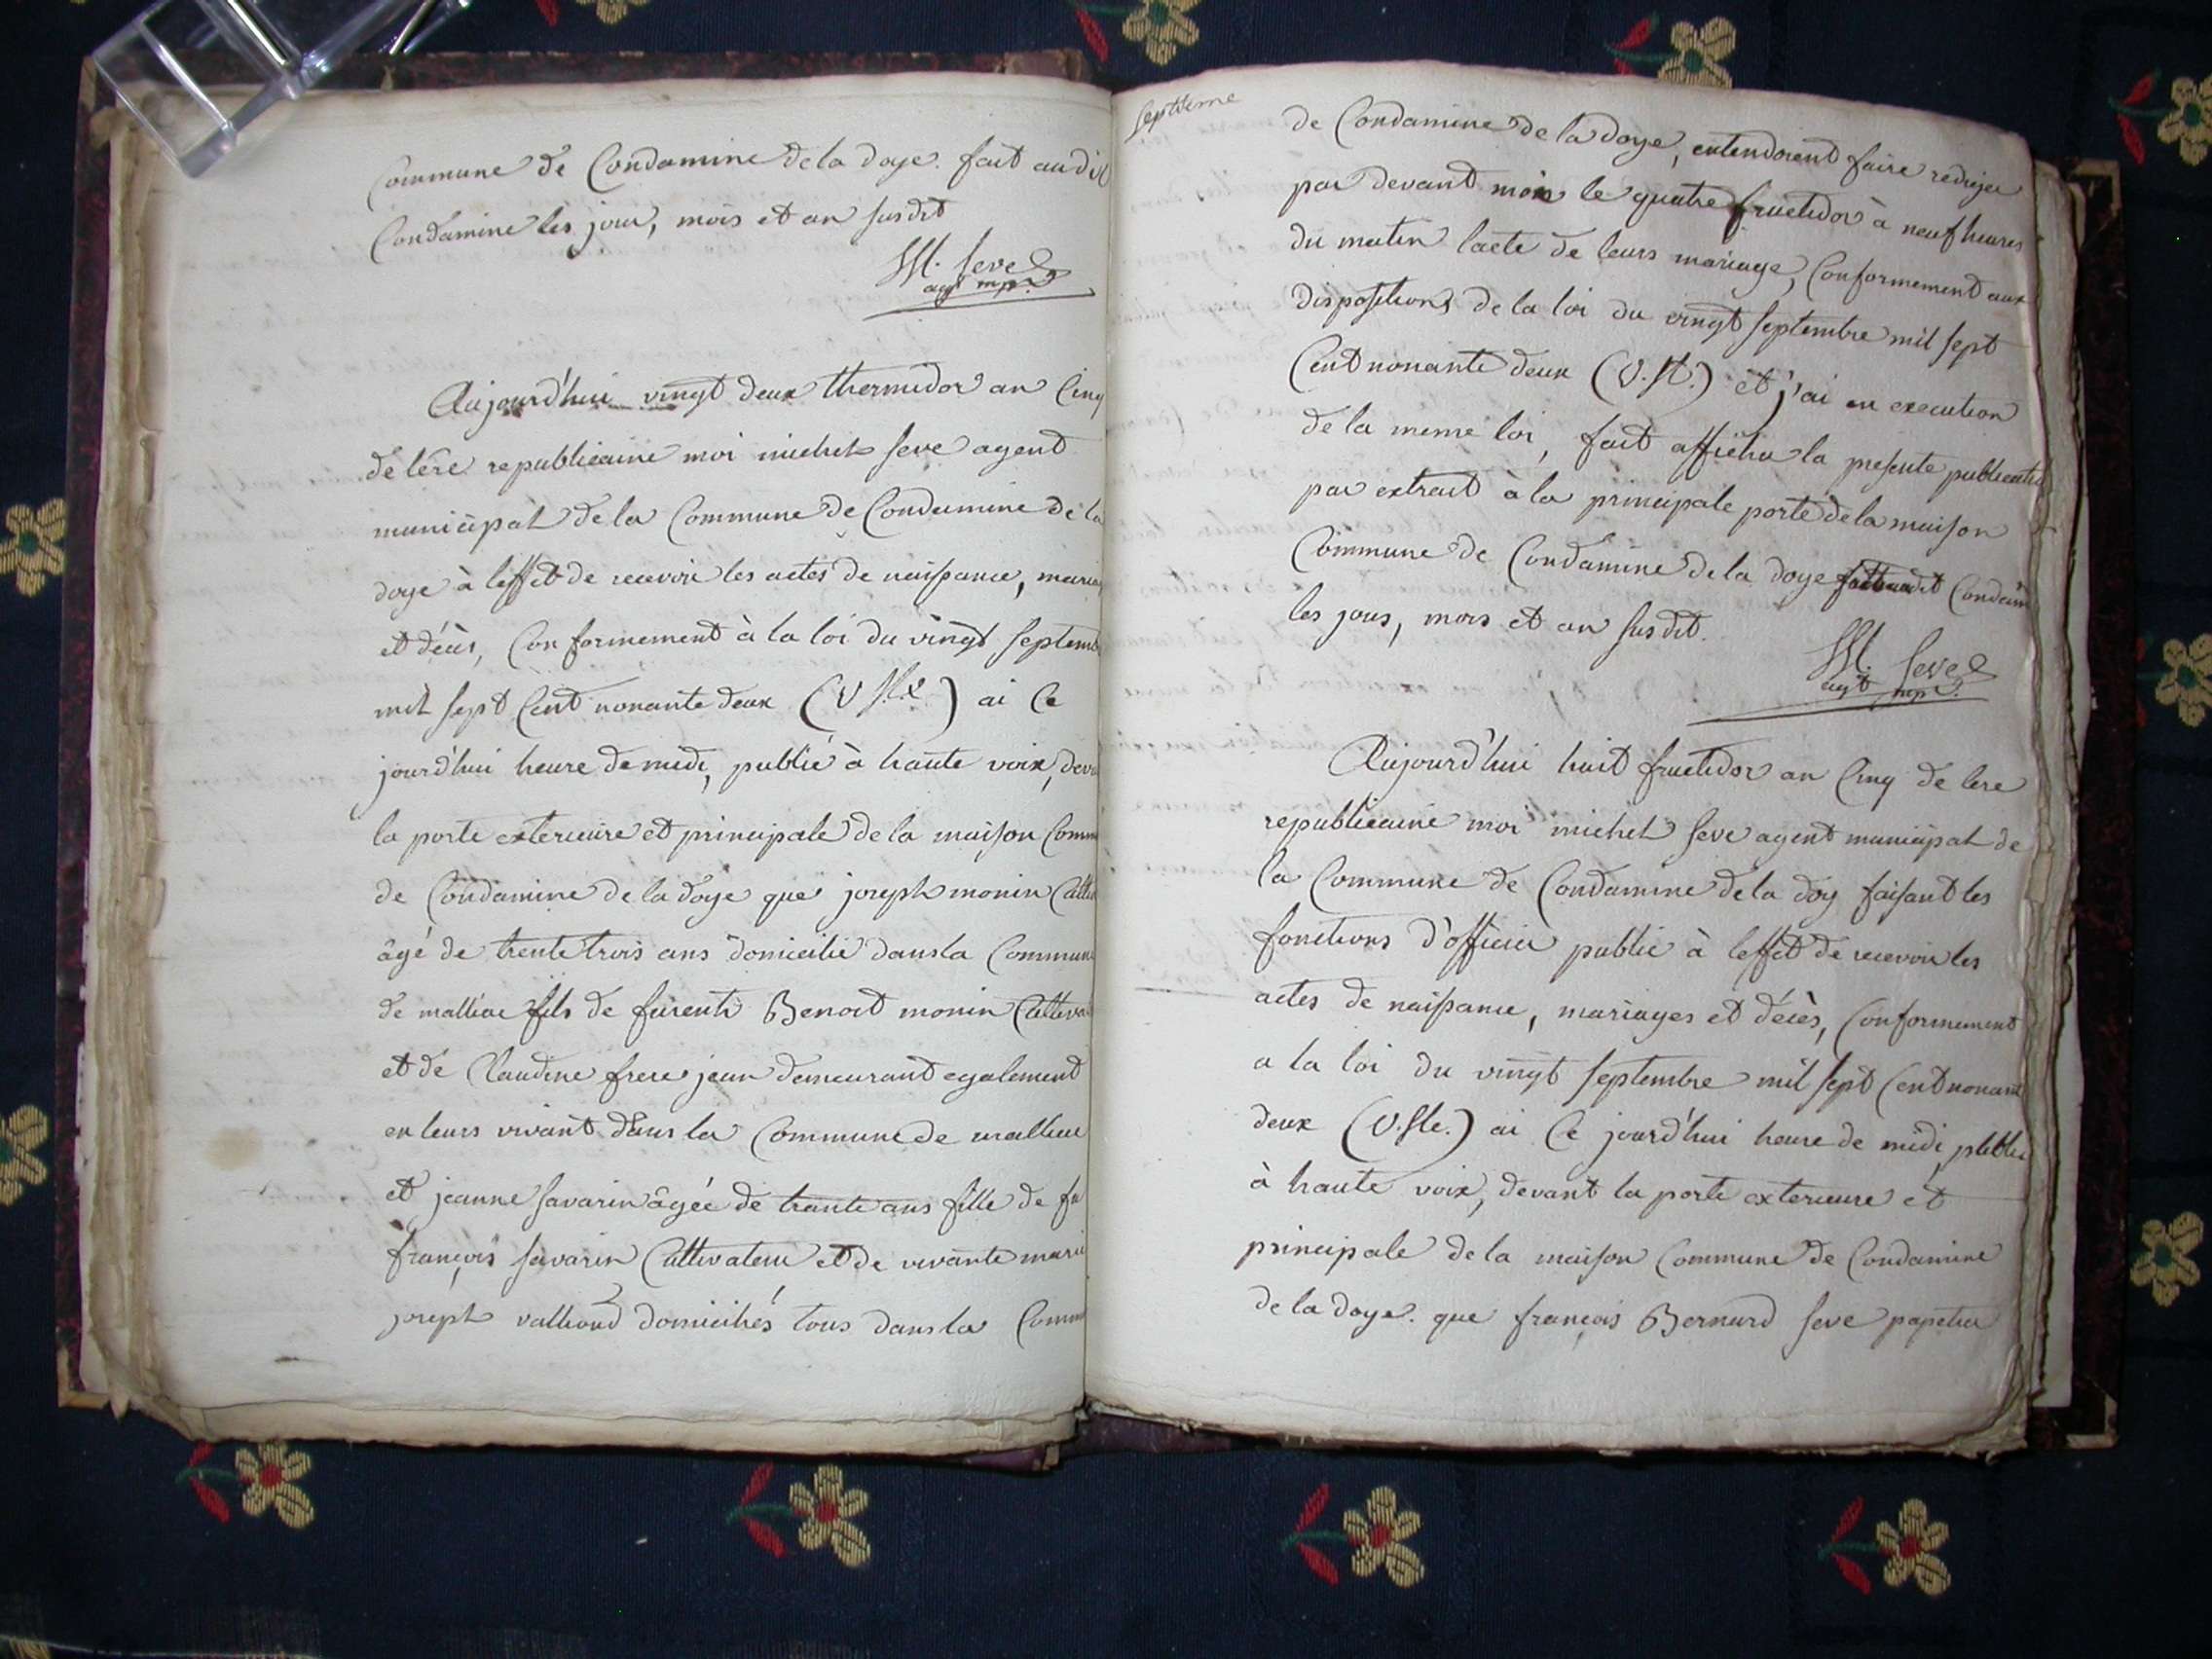 Commune de Condamine de la doye. fait audit
Condamine les jour, mois et an susdit
M. Seve
agt mpl
Aujourd'hui vingt deux thermidor an Cinq
de lère republicaine moi michel seve agent
municipal de la Commune de Condamine de la
doye à leffet de recevoir les actes de naissance, maria
et décès, Conformement à la loi du vingt septemb
mil sept Cent nonante deux (V. Ste) ai Ce
jourd'hui heure de midi, publié à haute voix, deva
la porte exterieure et principale de la maison Comm
de Condamine de la doye que joseph monin Culti
âgé de trente trois ans domicilié dans la Commune
de malliac fils de fürent Benoit monin Cultiva
et de Claudine frere jean demeurant egalement
en leurs vivant dans la Commune de
et jeanne savarin âgée de trante ans fille de fu
françois savarin Cultivateur et de vivante marie
joseph domiciliés tous dans la Comm
septieme
de Condamine de la doye, entendoient faire rediger
par devant moi le quatre fructidor à neuf heures
du matin lacte de leurs mariage, Conformement aux
dispositions de la loi du vingt septembre mil sept
Cent nonante deux (V. St.) et j'ai en execution
de la meme loi, fait afficher la presente publicatio
par extrait à la principale porte de la maison
Commune de Condamine de la doye fait audit Condam
les jour, mois et an susdit.
M. Seve
agt mpl.
Aujourd'hui huit fructidor an Cinq de lere
republicaine moi michel seve agent municipal de
la Commune de Condamine de la doy faisant les
fonctions d'officier public à leffet de recevoir les
actes de naissance, mariages et décès, Conformement
a la loi du vingt septembre mil sept Cent nonant
deux (V. Ste.) ai Ce jourd'hui heure de midi, publié
à haute voix, devant la porte exterieure et
principale de la maison Commune de Condamine
de la doye. que françois Bernard seve papetier